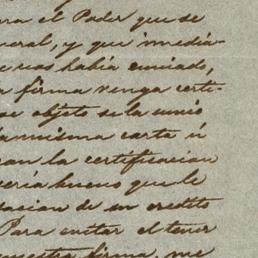 ra el Poder que se
neral, y que inmedia-
e was habia enviado,
a firma venga certi-
se objeto se la envio
la misma carta ú
ean la certificacion
ería bueno que le
tacion de un credito
Para evitar el tener
uestra firma, me